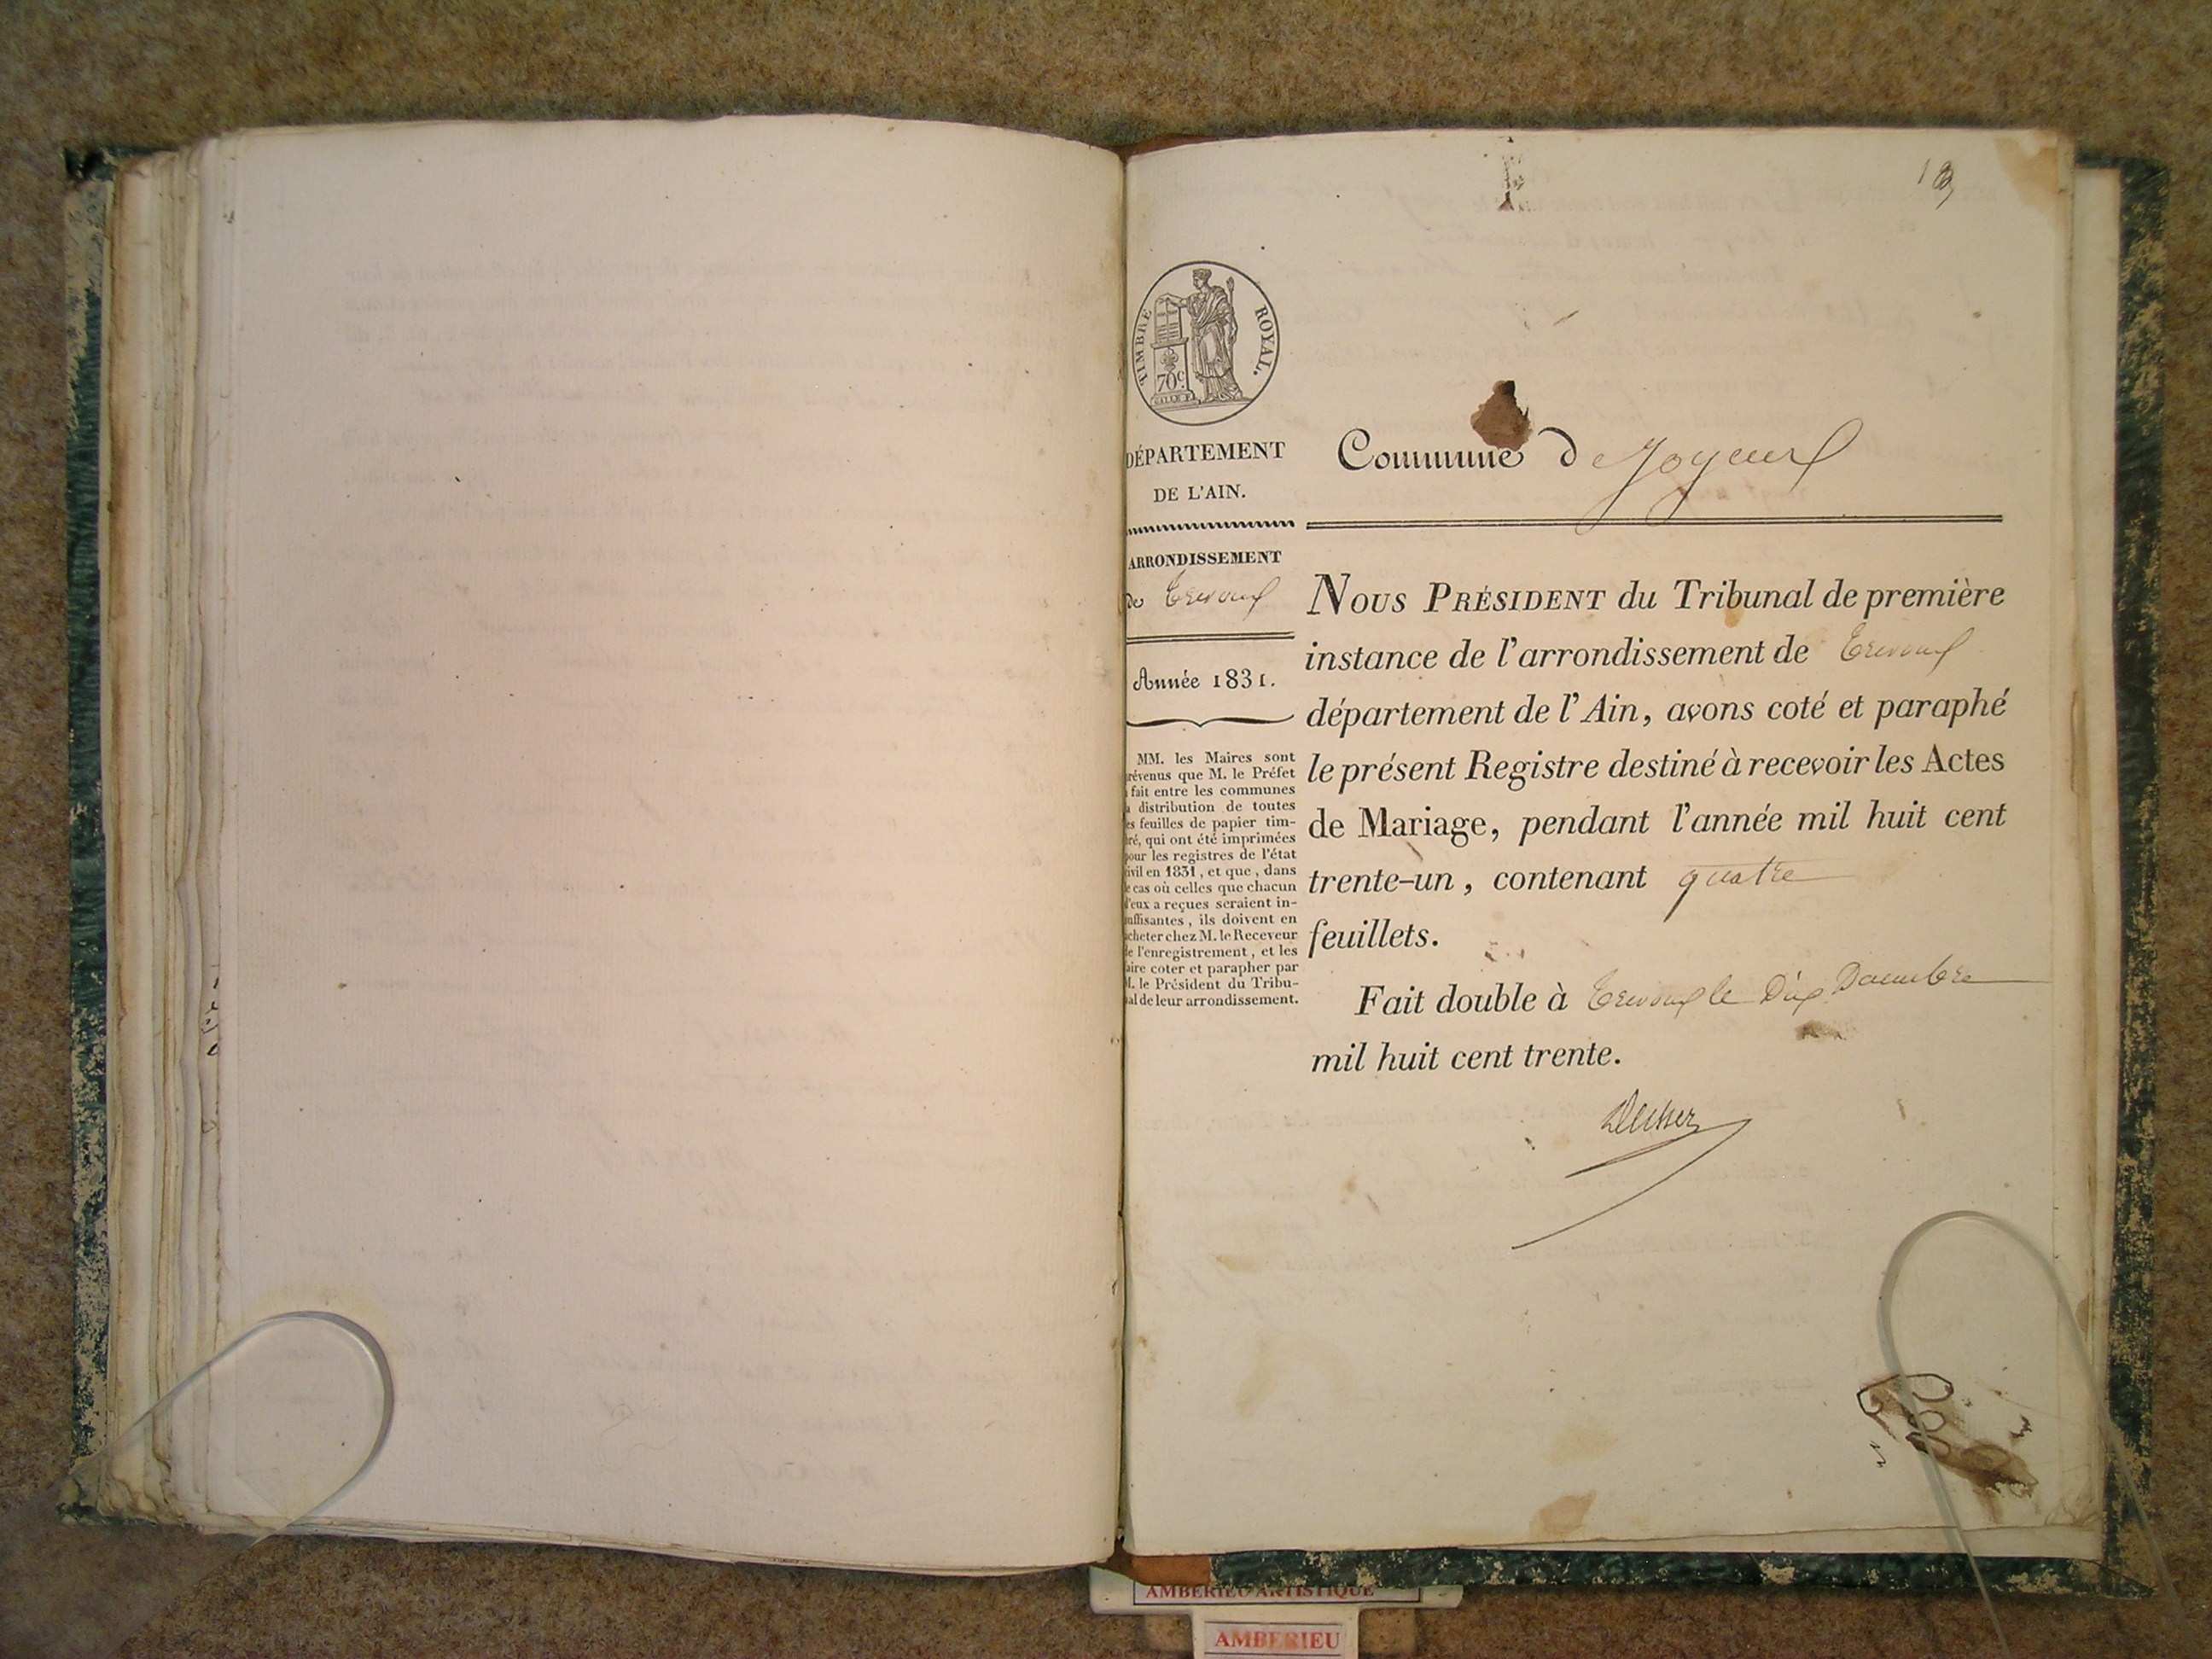 TIMBRE ROYAL.
70c
DÉPARTEMENT
DE L'AIN.
ARRONDISSEMENT
de Trevoux
Année 1831.
MM. les Maires sont
révenus que M. le Préfet
fait entre les communes
distribution de toutes
es feuilles de papier tim-
ré, qui ont été imprimées
our les registres de l'état
ivil en 1831, et que, dans
e cas où celles que chacun
d'eux a reçues seraient in-
uffisantes, ils doivent en
cheter chez M. le Receveur
e l'enregistrement, et les
aire coter et parapher par
M. le Président du Tribu-
al de leur arrondissement.
Commune de Joyeux
NOUS PRÉSIDENT du Tribunal de première
instance de l'arrondissement de Trevoux
département de l'Ain, avons coté et paraphé
le présent Registre destiné à recevoir les Actes
de Mariage, pendant l'année mil huit cent
trente-un, contenant quatre
feuillets.
Fait double à Trevoux le Dix Décembre
mil huit cent trente.
AMBERIEU ARTISTIQUE
AMBERIEU